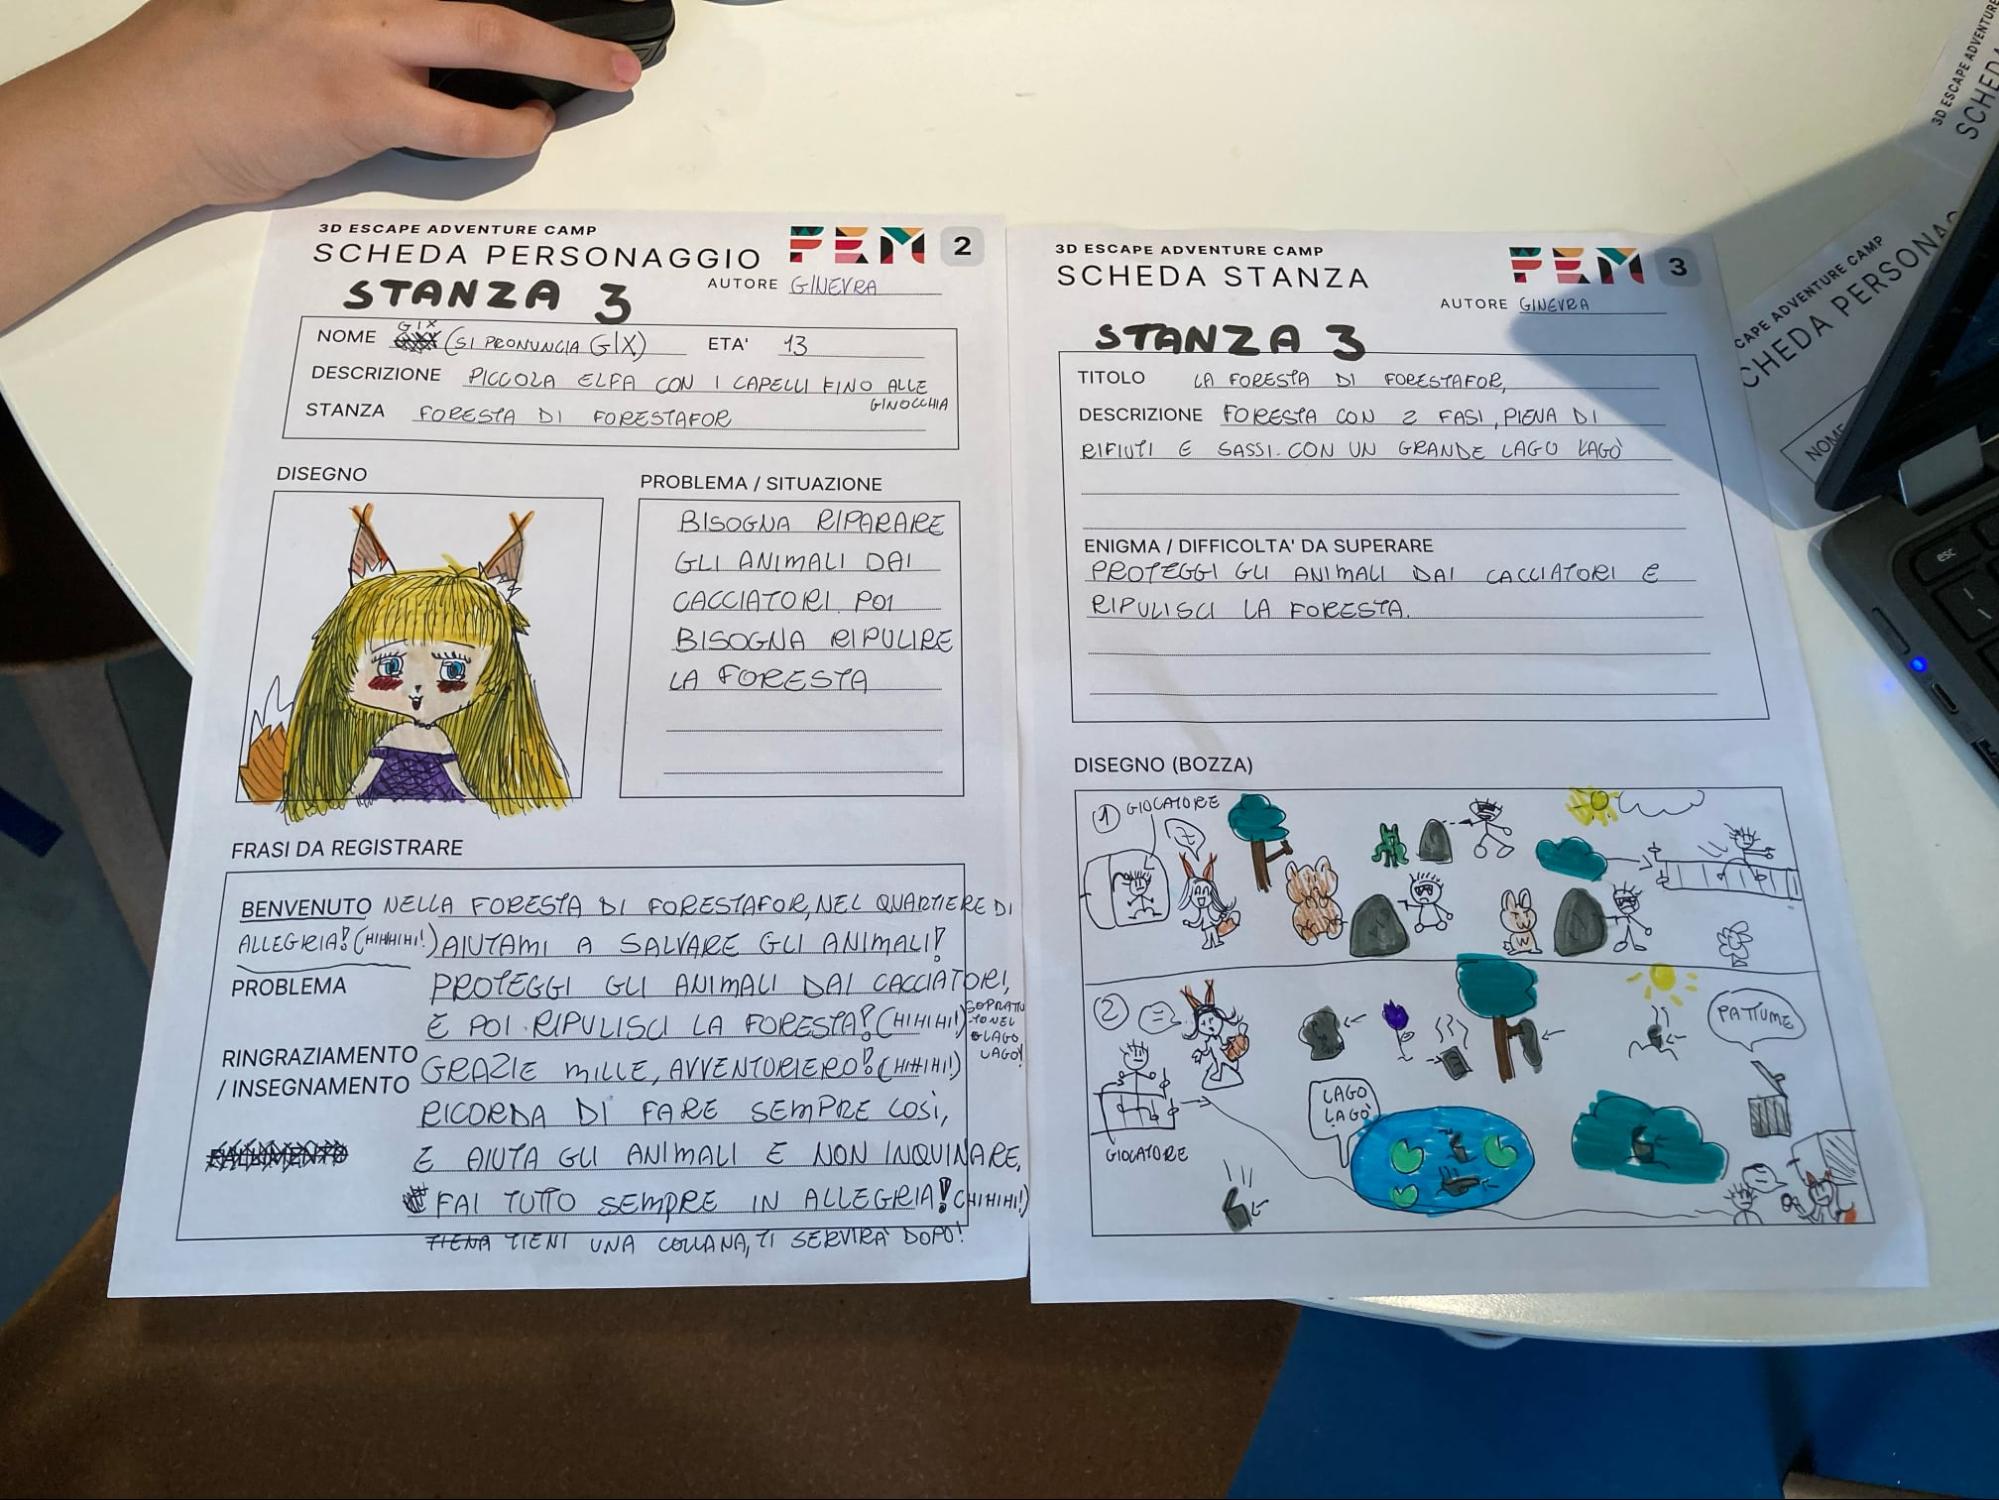 3D ESCAPE ADVENTURE CAMP
SCHEDA PERSONAGGIO
FEM
2
STANZA 3
AUTORE GINEVRA
NOME GIX (SI PRONUNCIA GIX) ETA' 13
DESCRIZIONE PICCOLA ELFA CON I CAPELLI FINO ALLE
GINOCCHIA
STANZA FORESTA DI FORESTAFOR
DISEGNO
PROBLEMA / SITUAZIONE
BISOGNA RIPARARE
GLI ANIMALI DAI
CACCIATORI. POI
BISOGNA RIPULIRE
LA FORESTA
FRASI DA REGISTRARE
BENVENUTO NELLA FORESTA DI FORESTAFOR, NEL QUARTIERE DI
ALLEGRIA! (HIHIHI!) AIUTAMI A SALVARE GLI ANIMALI!
PROBLEMA PROTEGGI GLI ANIMALI DAI CACCIATORI,
E POI RIPULISCI LA FORESTA! (HIHIHI!)
SOPRATU
TO NEL
LAGO
LAGO!
RINGRAZIAMENTO
/ INSEGNAMENTO
GRAZIE MILLE, AVVENTURIERO! (HIHIHI!)
RICORDA DI FARE SEMPRE COSÌ,
E AIUTA GLI ANIMALI E NON INQUINARE,
FAI TUTTO SEMPRE IN ALLEGRIA! (HIHIHI!)
TIENI UNA COLLANA, TI SERVIRÀ DOPO!
3D ESCAPE ADVENTURE CAMP
SCHEDA STANZA
FEM
3
AUTORE GINEVRA
STANZA 3
TITOLO LA FORESTA DI FORESTAFOR,
DESCRIZIONE FORESTA CON 2 FASI, PIENA DI
RIFIUTI E SASSI. CON UN GRANDE LAGO LAGÒ
ENIGMA / DIFFICOLTA' DA SUPERARE
PROTEGGI GLI ANIMALI DAI CACCIATORI E
RIPULISCI LA FORESTA.
DISEGNO (BOZZA)
1 GIOCATORE
2
PATTUME
LAGO
LAGÒ
GIOCATORE
3D ESCAPE ADVENTURE
SCHEDA
ESCAPE ADVENTURE CAMP
SCHEDA PERSONA
NOME
esc